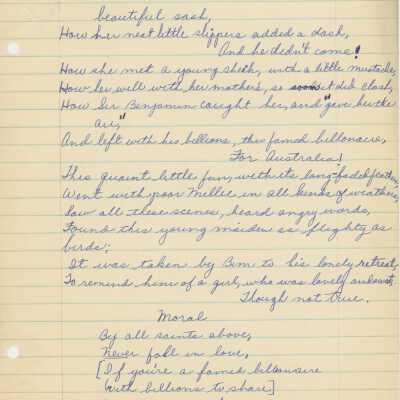 beautiful sash,
How her neat little slippers added a dash,
And he didn't come!
How she met a young sheik, with a little mustache,
How her will with her mothers, so did clash,
How Sir Benjamin caught her, and "give her the
air,"
And left with his billions, this famed billionaire,
For Australia!
This quaint little fan, with its long-faded feather,
Went with poor Millie in all kinds of weather,
Saw all these scenes, heard angry words,
Found this young maiden as flighty as
birds;
It was taken by Bim to his lonely retreat,
To remind him of a girl, who was lovely and sweet,
Though not true.
Moral
By all saints above,
Never fall in love,
[If you're a famed billionaire
With billions to share]